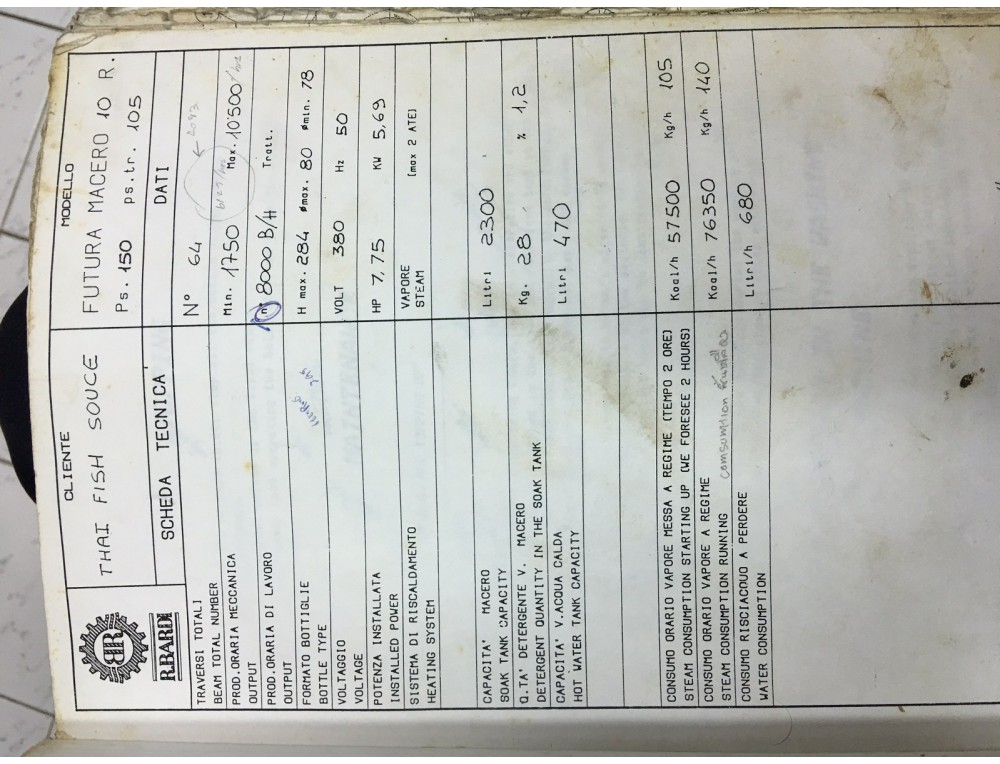 R.BARDI
CLIENTE
THAI FISH SOUCE
MODELLO
FUTURA MACERO 10 R.
Ps. 150 ps.tr. 105
SCHEDA TECNICA
DATI
TRAVERSI TOTALI
BEAM TOTAL NUMBER
N° 64
PROD.ORARIA MECCANICA
OUTPUT
Min. 1750 Max. 10'500
PROD.ORARIA DI LAVORO
OUTPUT
n. 8000 B/H Tratt.
FORMATO BOTTIGLIE
BOTTLE TYPE
H max. 284 ømax. 80 ømin. 78
VOLTAGGIO
VOLTAGE
VOLT 380 Hz 50
POTENZA INSTALLATA
INSTALLED POWER
HP 7,75 KW 5,69
SISTEMA DI RISCALDAMENTO
HEATING SYSTEM
VAPORE
STEAM (max 2 ATE)
CAPACITA' MACERO
SOAK TANK CAPACITY
Litri 2300
Q.TA' DETERGENTE V. MACERO
DETERGENT QUANTITY IN THE SOAK TANK
Kg. 28 % 1,2
CAPACITA' V.ACQUA CALDA
HOT WATER TANK CAPACITY
Litri 470
CONSUMO ORARIO VAPORE MESSA A REGIME (TEMPO 2 ORE)
STEAM CONSUMPTION STARTING UP (WE FORESEE 2 HOURS)
Kcal/h 57500 Kg/h 105
CONSUMO ORARIO VAPORE A REGIME
STEAM CONSUMPTION RUNNING
Kcal/h 76350 Kg/h 140
CONSUMO RISCIACQUO A PERDERE
WATER CONSUMPTION
Litri/h 680